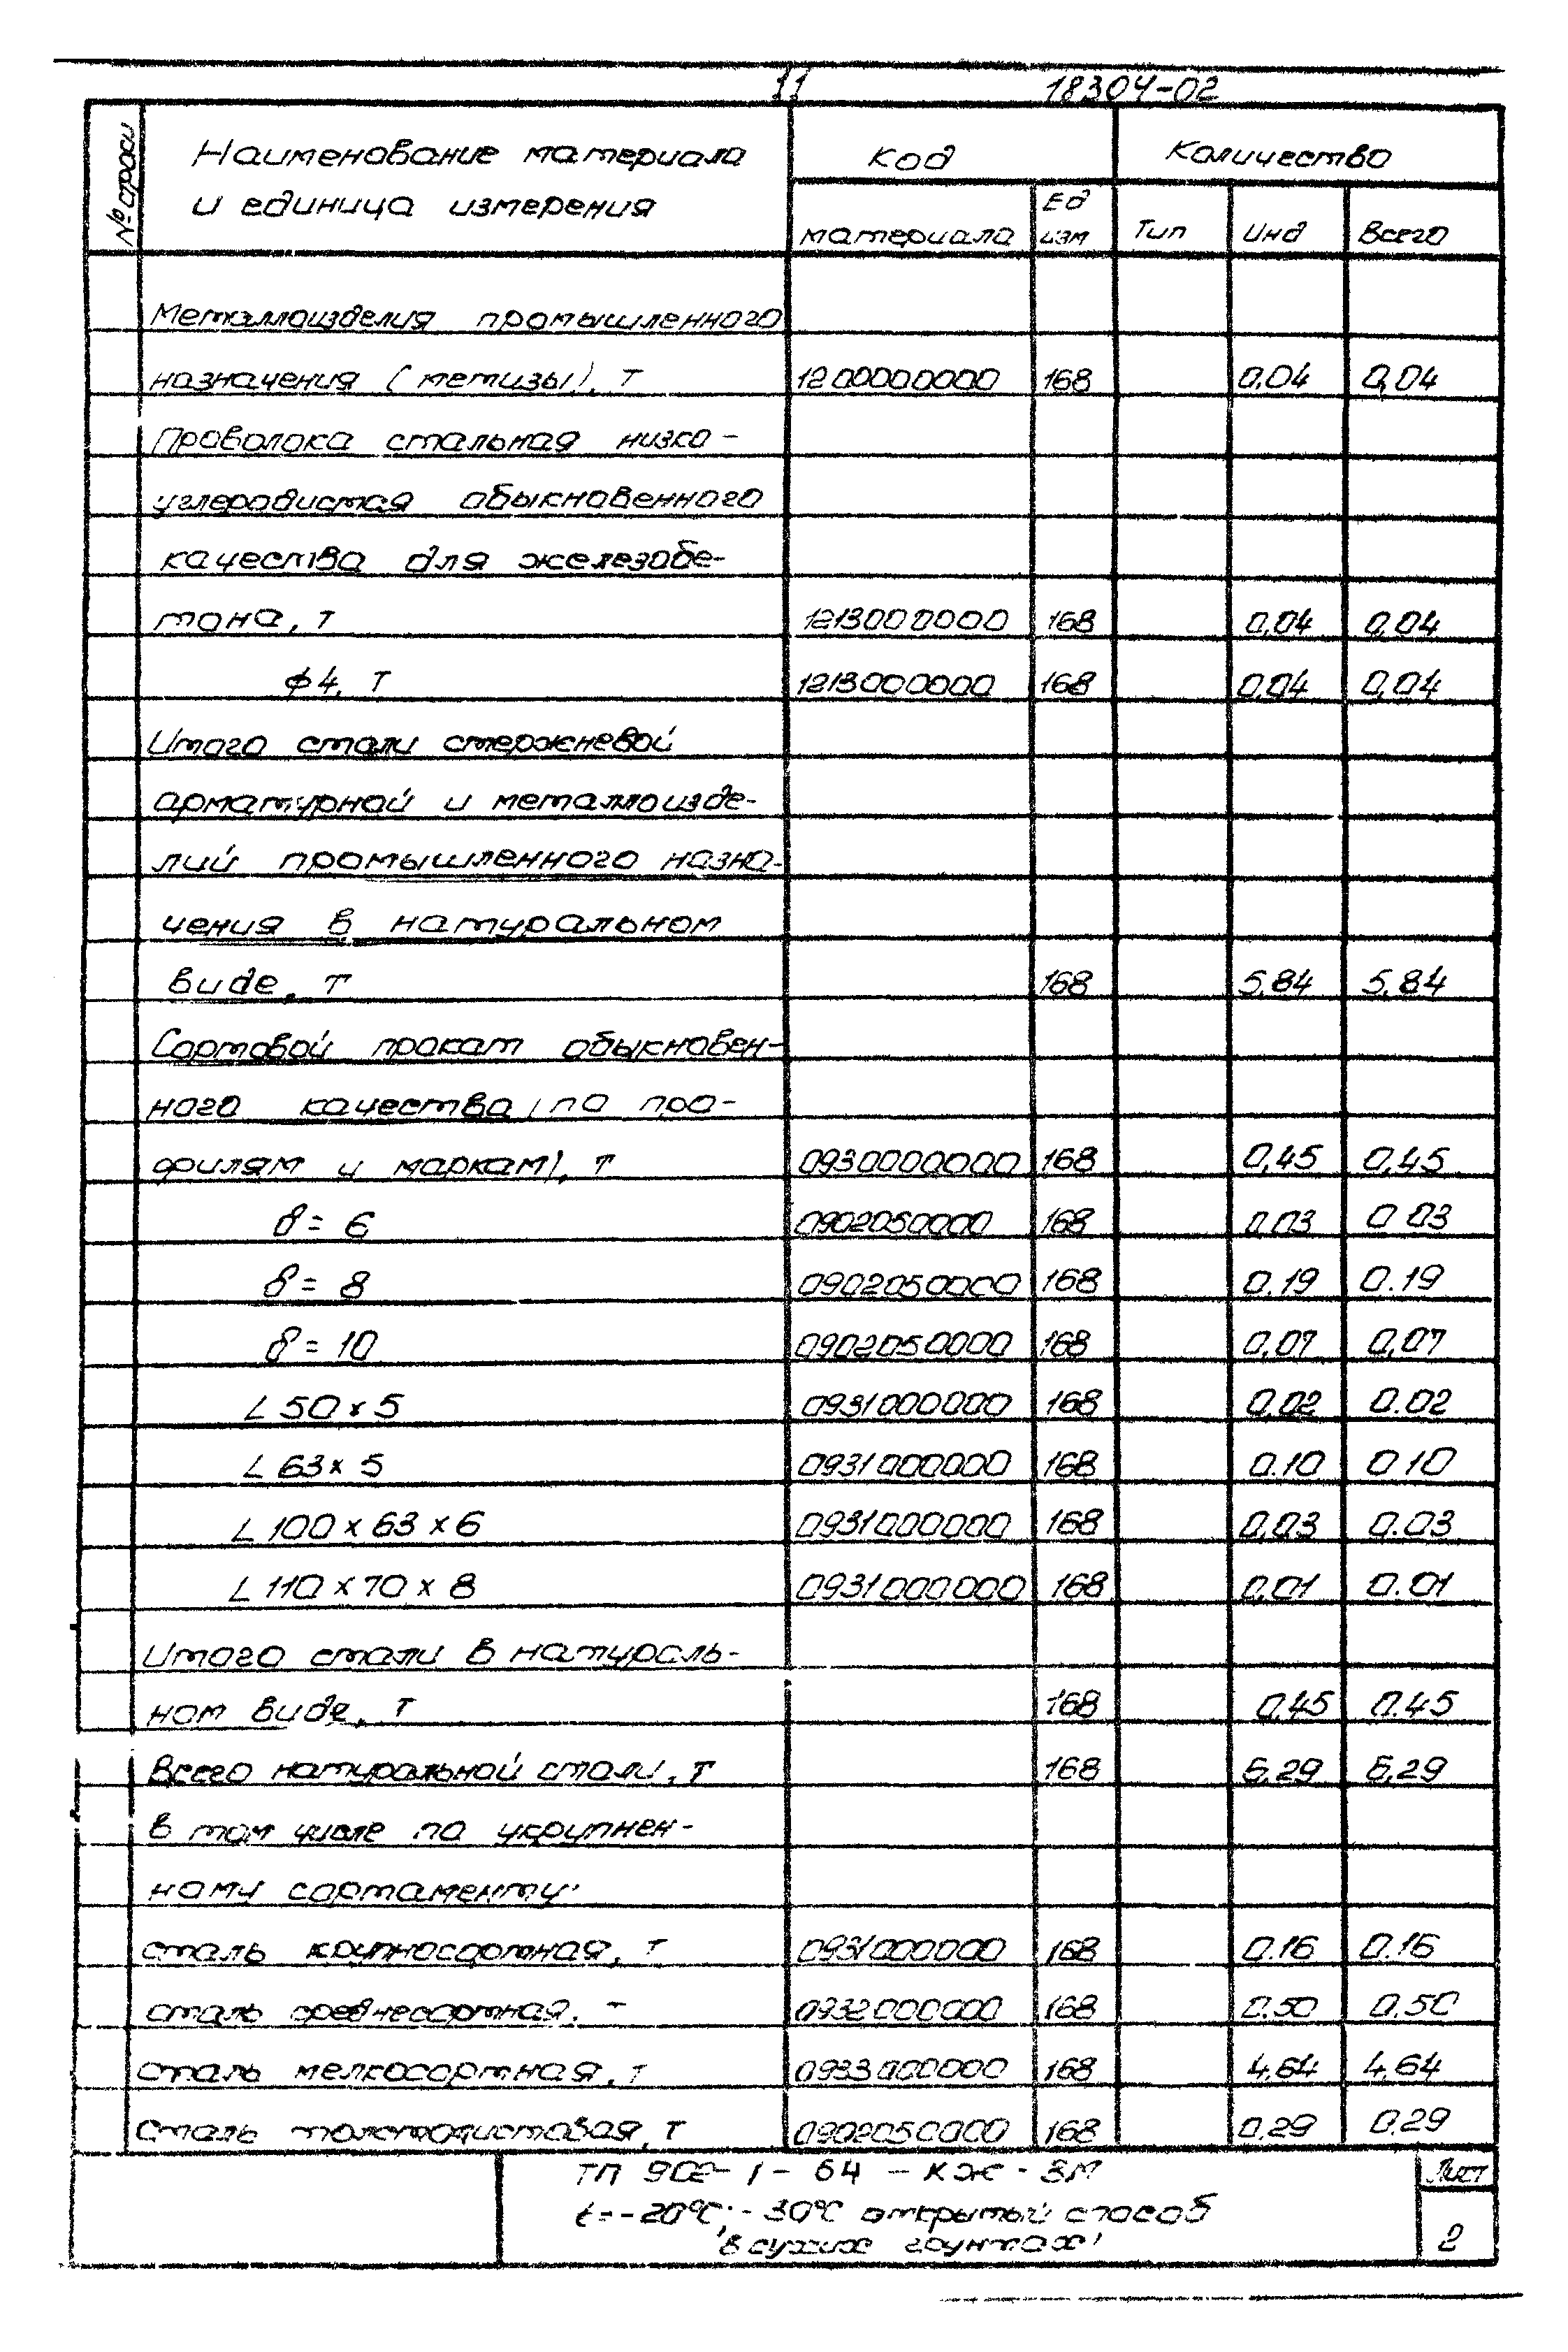 11 18304-02
№ строки Наименование материала Код Количество
и единица измерения материала Ед изм Тип Инд Всего
Металлоизделия промышленного
назначения (метизы), т 1200000000 168 0.04 0,04
Проволока стальная низко-
углеродистая обыкновенного
качества для железобе-
тона, т 1213000000 168 0,04 0,04
ϕ4, т 1213000000 168 0,04 0,04
Итого стали стержневой
арматурной и металлоизде-
лий промышленного назна-
чения в натуральном
виде, т 168 5,84 5,84
Сортовой прокат обыкновен-
ного качества (по про-
филям и маркам), т 0930000000 168 0,45 0,45
δ= 6 0902050000 168 0,03 0 03
δ= 8 0902050000 168 0.19 0.19
δ= 10 0902050000 168 0,07 0,07
L 50 x 5 0931000000 168 0,02 0.02
L 63 x 5 0931000000 168 0.10 0 10
L 100 x 63 x 6 0931000000 168 0,03 0.03
L 110 x 70 x 8 0931000000 168 0,01 0.01
Итого стали в натураль-
ном виде, т 168 0,45 0.45
Всего натуральной стали, т 168 6,29 6,29
в том числе по укрупнен-
ному сортаменту:
сталь крупносортная, т 0931000000 168 0.16 0.16
сталь среднесортная, т 0932000000 168 0.50 0.50
сталь мелкосортная, т 0933000000 168 4,64 4,64
Сталь толстолистовая, т 0902050000 168 0,29 0.29
ТП 902-1-64-КЖ-ВМ Лист
t=-20°С; -30°С открытый способ
"в сухих грунтах" 2